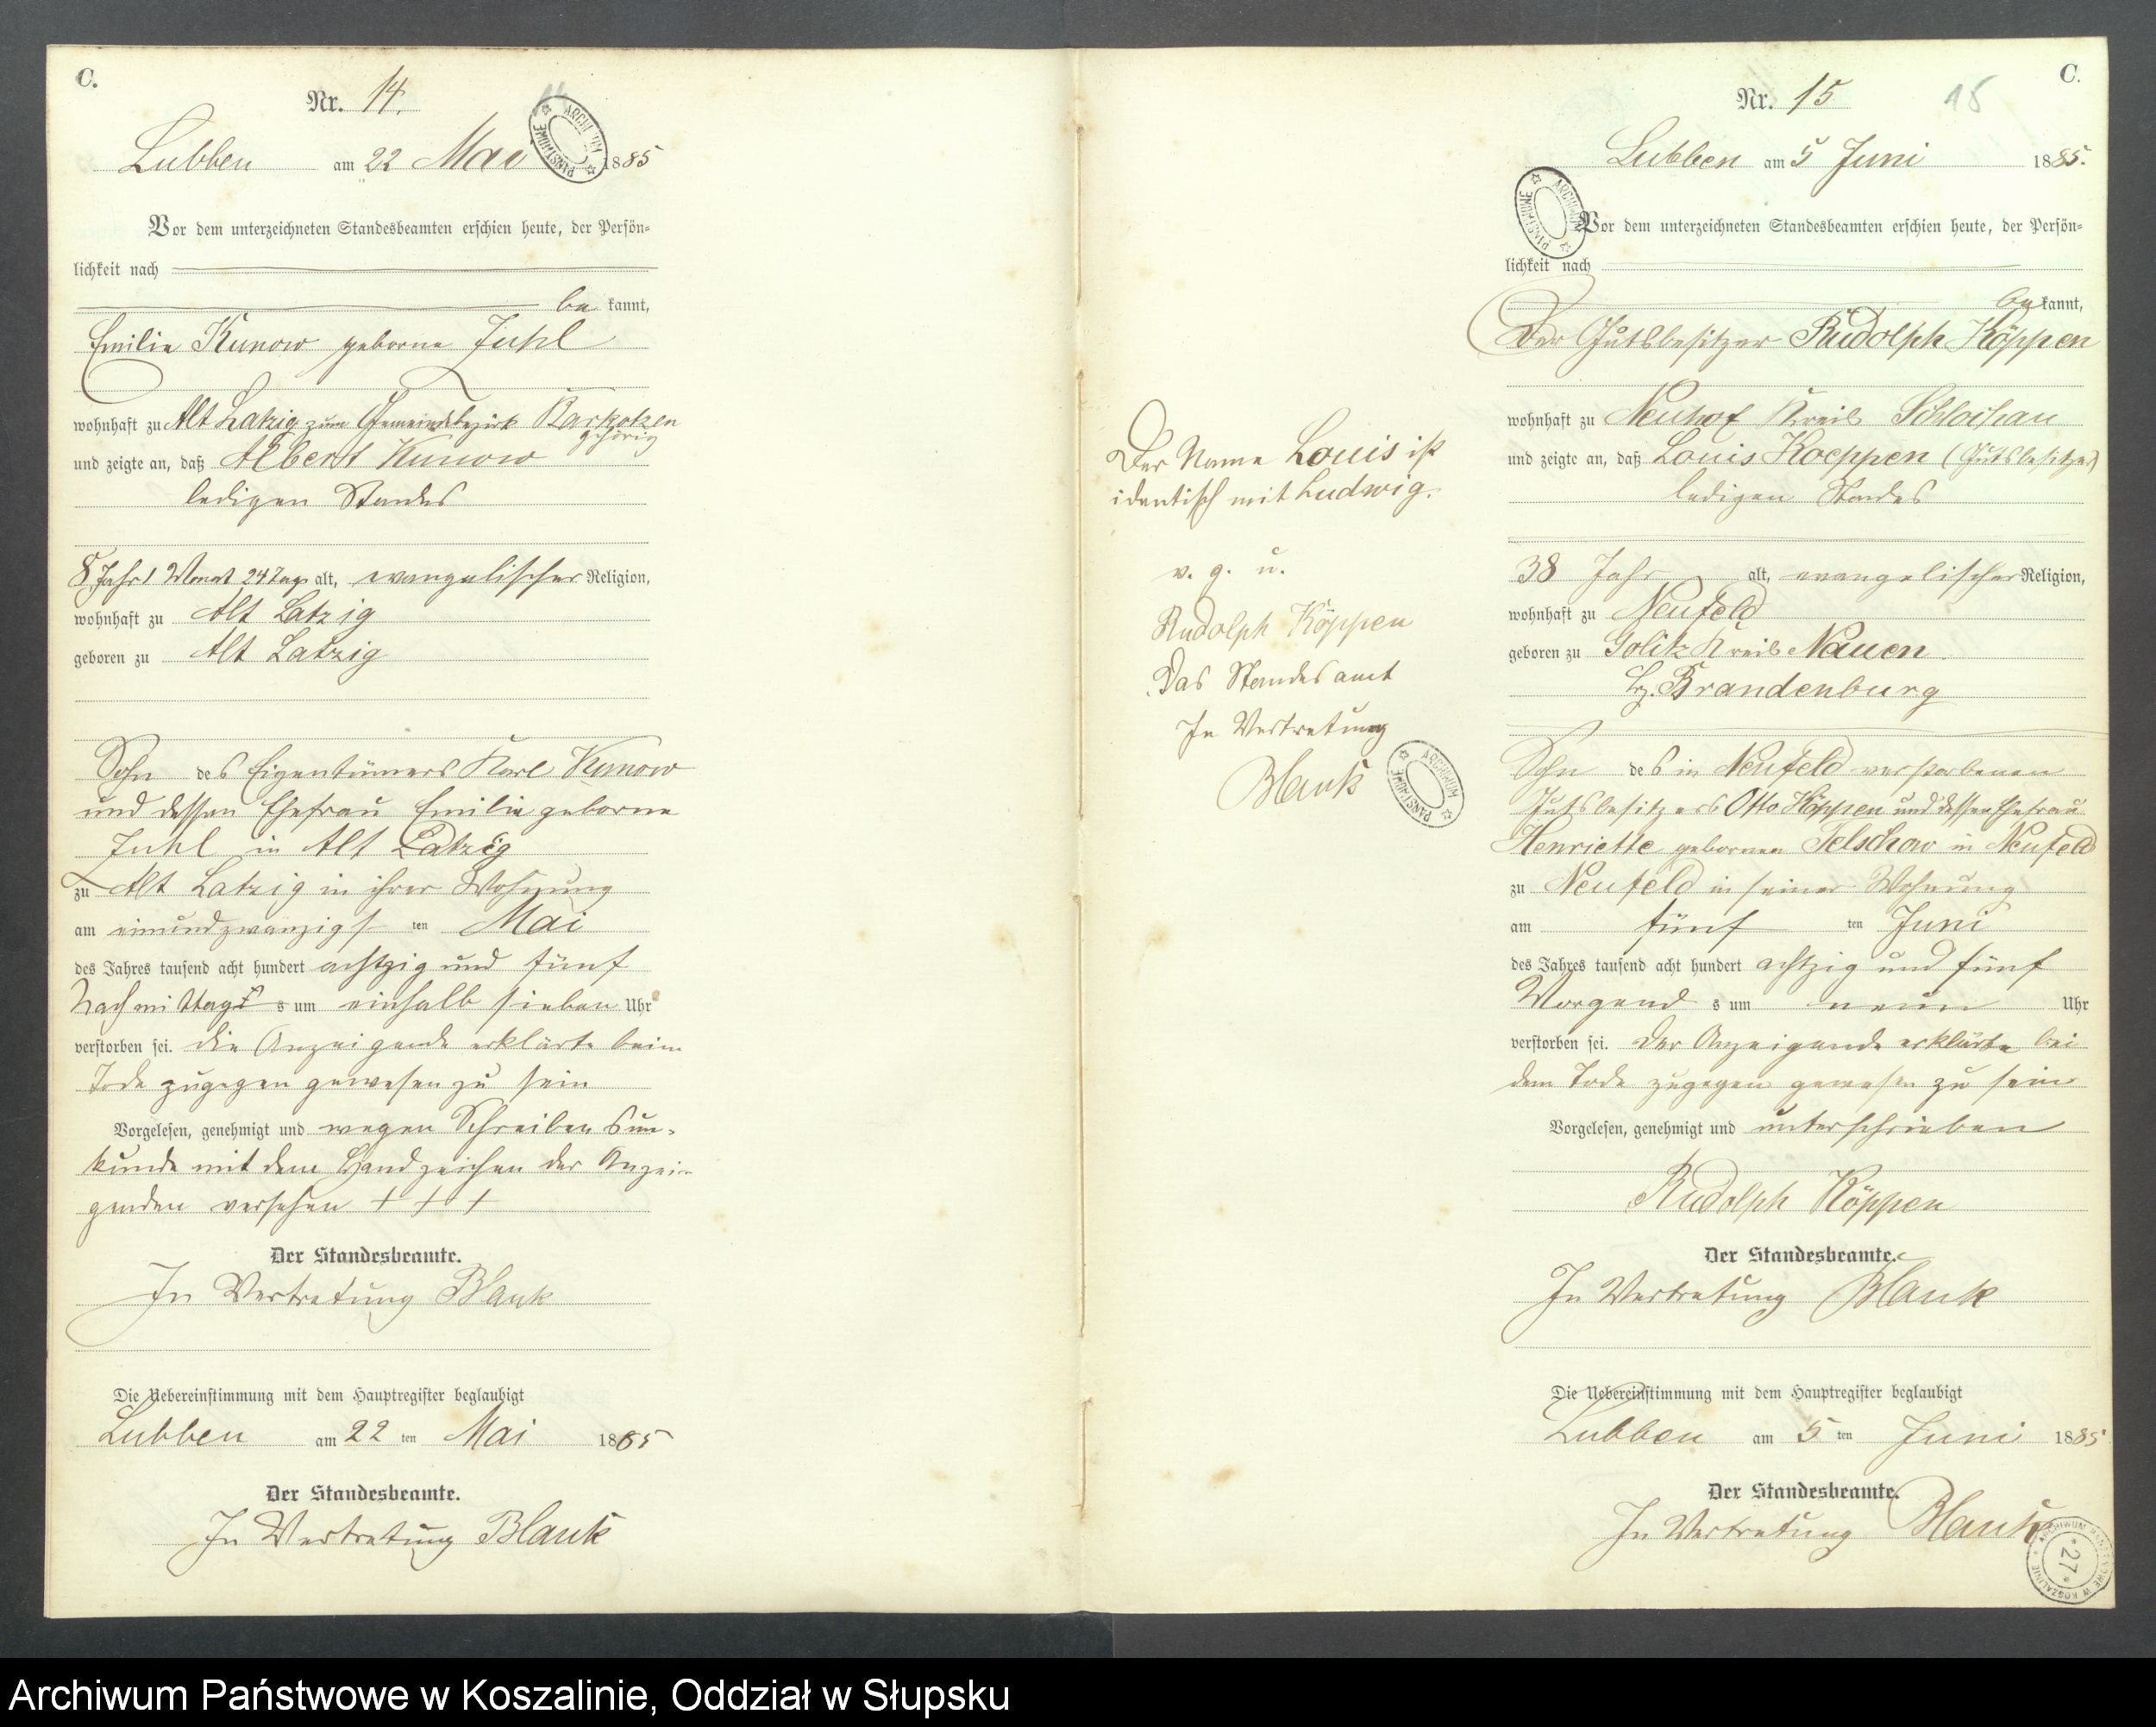 C.
Nr. 14.
Lubben am 22 Mai 1885
Vor dem unterzeichneten Standesbeamten erschien heute, der Persön=
lichkeit nach
be kannt,
Emilie Kunow geborne Juhl
wohnhaft zu Alt Latzig zum Gemeindebezirk Barkotzen
gehörig
und zeigte an, daß Albert Kunow
ledigen Standes
8 Jahr 1 Monat 24 Tage alt, evangelischer Religion,
wohnhaft zu Alt Latzig
geboren zu Alt Latzig
Sohn des Eigentümers Karl Kunow
und dessen Ehefrau Emilie geborne
Juhl in Alt Latzig
zu Alt Latzig in ihrer Wohnung
am einundzwanzigsten Mai
des Jahres tausend acht hundert achtzig und fünf
Nachmittags um einhalb sieben Uhr
verstorben sei. die Anzeigende erklärte beim
Tode zugegen gewesen zu sein
Vorgelesen, genehmigt und wegen Schreibensun=
kunde mit dem Handzeichen der Anzei=
genden versehen + + +
Der Standesbeamte.
In Vertretung Blank
Die Uebereinstimmung mit dem Hauptregister beglaubigt
Lubben am 22 ten Mai 1885
Der Standesbeamte.
In Vertretung Blank
Der Name Louis ist
identisch mit Ludwig.
v. g. u.
Rudolph Köppen
Das Standesamt
In Vertretung
Blank
C.
Nr. 15
15
Lubben am 5 Juni 1885.
Vor dem unterzeichneten Standesbeamten erschien heute, der Persön=
lichkeit nach
be kannt,
Der Gutsbesitzer Rudolph Köppen
wohnhaft zu Neuhof Kreis Schlochau
und zeigte an, daß Louis Koeppen (Gutsbesitzer)
ledigen Standes
38 Jahr alt, evangelischer Religion,
wohnhaft zu Neufeld
geboren zu Golitz Kreis Nauen
Bz. Brandenburg
Sohn des in Neufeld verstorbenen
Gutsbesitzers Otto Köppen und dessen Ehefrau
Henriette gebornen Telschow in Neufeld
zu Neufeld in seiner Wohnung
am fünf ten Juni
des Jahres tausend acht hundert achtzig und fünf
Morgend s um neun Uhr
verstorben sei. Der Anzeigende erklärte bei
dem Tode zugegen gewesen zu sein
Vorgelesen, genehmigt und unterschrieben
Rudolph Köppen
Der Standesbeamte.
In Vertretung Blank
Die Uebereinstimmung mit dem Hauptregister beglaubigt
Lubben am 5 ten Juni 1885
Der Standesbeamte.
In Vertretung Blank
ARCHIWUM PAŃSTWOWE W KOSZALINIE
* 27 *
Archiwum Państwowe w Koszalinie, Oddział w Słupsku